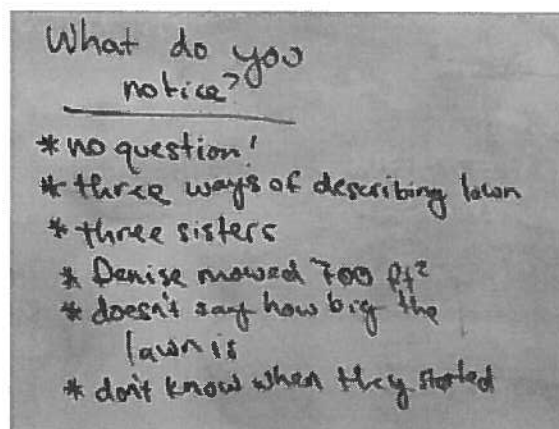 What do you
notice?
* no question!
* three ways of describing lawn
* three sisters
* Denise mowed 700 ft²
* doesn't say how big the
lawn is
* don't know when they started